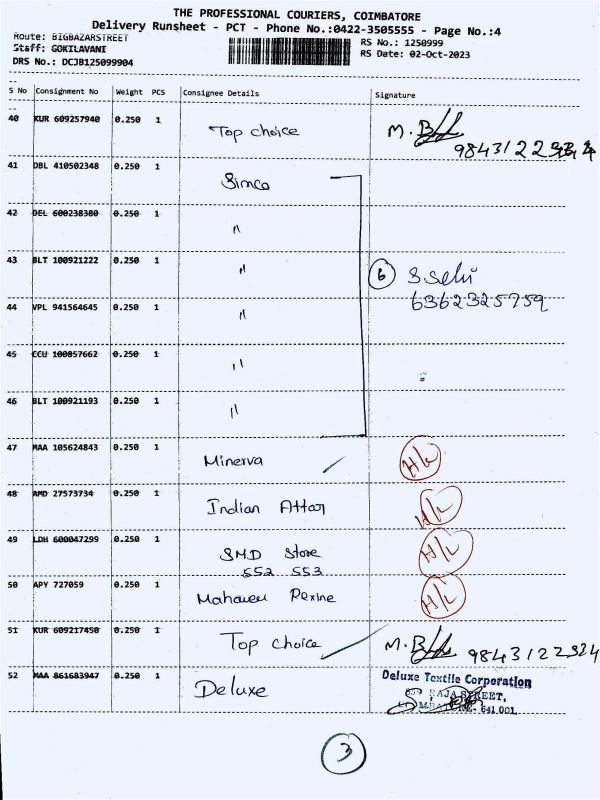 THE PROFESSIONAL COURIERS, COIMBATORE
Delivery Runsheet - PCT - Phone No.:0422-3505555 - Page No.:4
Route: BIGBAZARSTREET
RS No.: 1250999
Staff: GOKILAVANI
RS Date: 02-Oct-2023
DRS No.: DCJB125099904
S No Consignment No Weight PCS Consignee Details Signature
40 KUR 609257940 0.250 1 Top choice M.B
41 DBL 410502348 0.250 1 Simco
42 DEL 600238380 0.250 1 "
43 BLT 100921222 0.250 1 " 6
6362325759
44 VPL 941564645 0.250 1 "
45 CCU 100857662 0.250 1 "
46 BLT 100921193 0.250 1 "
47 MAA 105624843 0.250 1 Minerva H/L
48 AMD 27573734 0.250 1 Indian Attar H/L
49 LDH 600047299 0.250 1 S.M.D Store H/L
552 553
50 APY 727059 0.250 1 H/L
51 KUR 609217450 0.250 1 Top choice M.B 9843122324
52 MAA 861683947 0.250 1 Deluxe Deluxe Textile Corporation
RAJA STREET,
641 001.
3